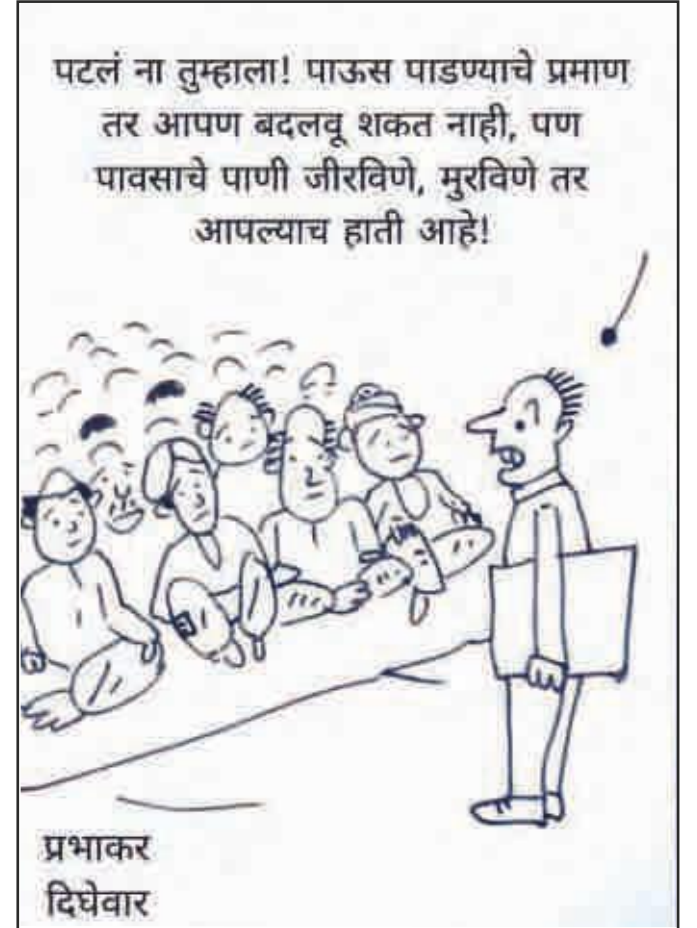 पटलं ना तुम्हाला! पाऊस पाडण्याचे प्रमाण
तर आपण बदलवू शकत नाही, पण
पावसाचे पाणी जीरविणे, मुरविणे तर
आपल्याच हाती आहे!
प्रभाकर
दिघेवार